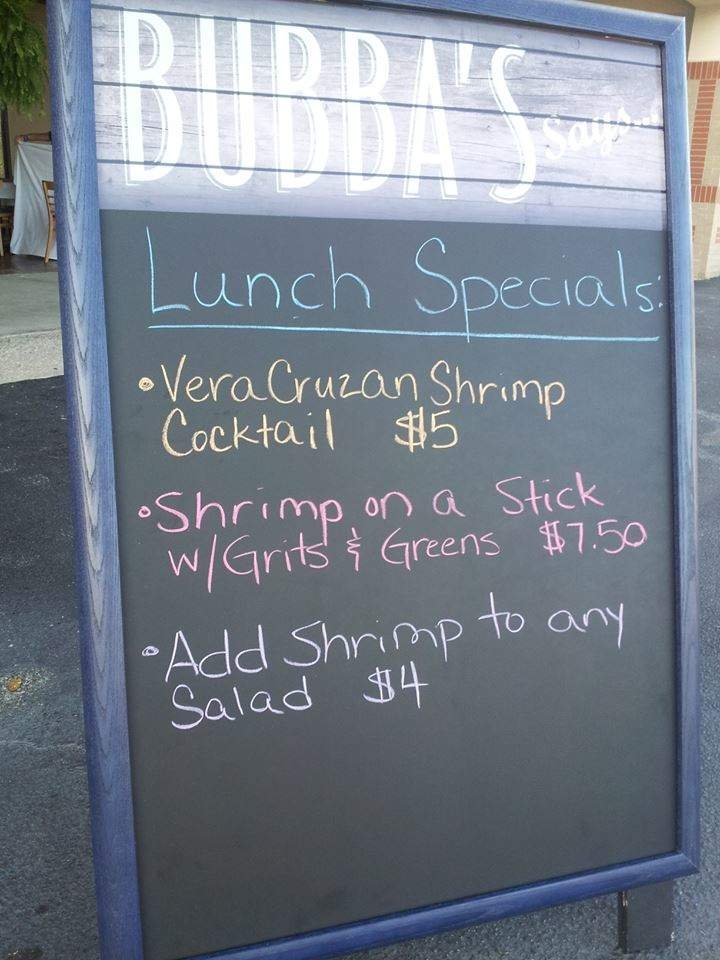 BUBBA'S Says...
Lunch Specials:
• Vera Cruzan Shrimp
Cocktail $5
• Shrimp on a Stick
w/Grits & Greens $7.50
• Add Shrimp to any
Salad $4